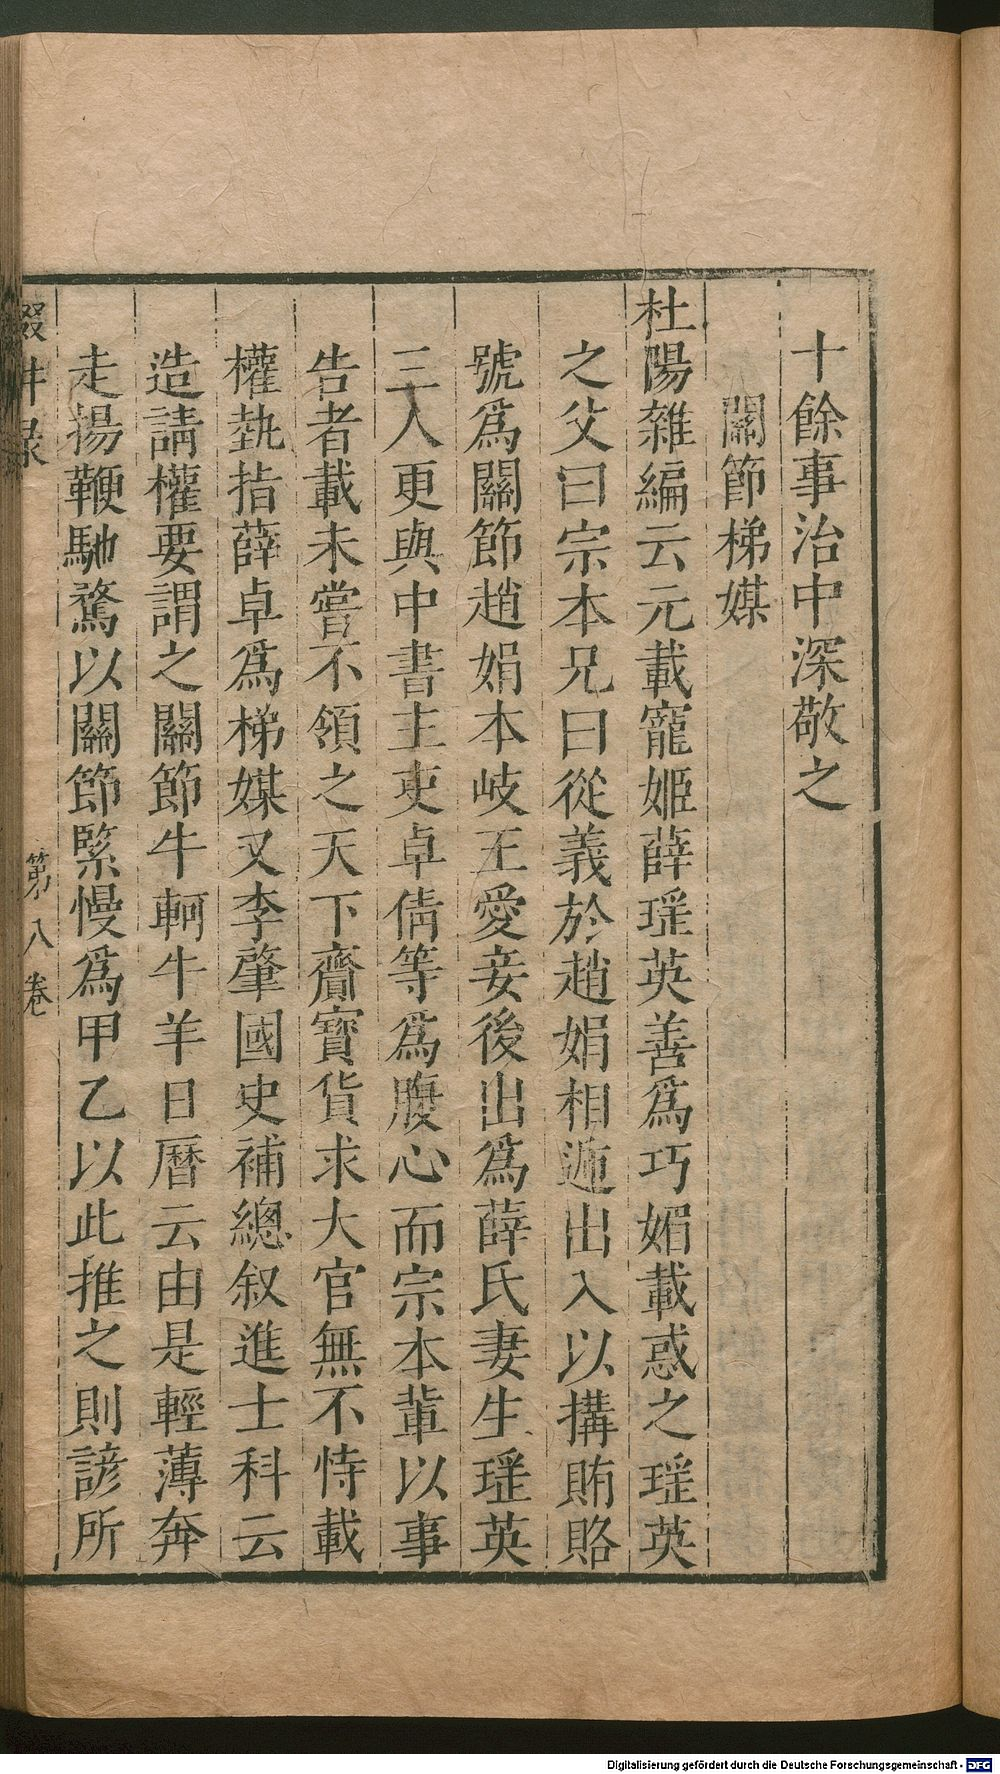 十餘事治中深敬之
關節梯媒
杜陽雜編云元載寵姬薛瑶英善爲巧媚載惑之瑶英
之父曰宗本兄曰從義於趙娟相遁出入以搆賄賂
號爲關節趙娟本岐王愛妾後出爲薛氏妻生瑶英
三人更與中書主吏卓倩等爲腹心而宗本輩以事
告者載未嘗不領之天下齎寶貨求大官無不恃載
權埶指薛卓爲梯媒又李肇國史補總叙進士科云
造請權要謂之關節牛軻牛羊日曆云由是輕薄奔
走揚鞭馳騖以關節緊慢爲甲乙以此推之則諺所
第八卷
Digitalisierung gefördert durch die Deutsche Forschungsgemeinschaft - DFG